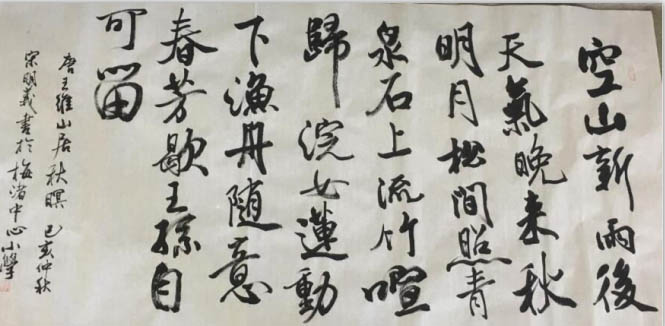 空山新雨後
天氣晚来秋
明月松間照青
泉石上流竹喧
歸浣女蓮動
下漁舟随意
春芳歇王孫自
可留
唐王維山居秋暝 己亥仲秋
宋明義書於梅渚中心小學